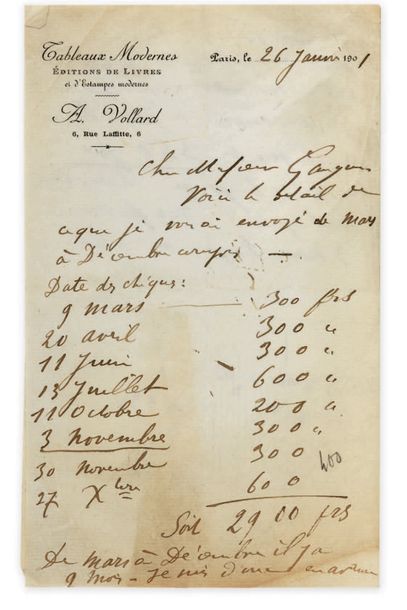 Tableaux Modernes
ÉDITIONS DE LIVRES
et d'Estampes modernes
A. Vollard
6, Rue Laffitte, 6
Paris, le 26 Janvier 1901
Cher Monsieur Gauguin
Voici le détail de
ce que je vous ai envoyé de mars
à Décembre compris —
Date des chèques :
9 mars — 300 frs
20 avril 300 "
11 Juin 300 "
13 Juillet 600 "
11 Octobre 200 "
3 novembre 300 "
30 novembre 300 400
27 Xbre 600
Soit 2900 frs
De mars à Décembre il y a
9 mois - Je suis donc en avance